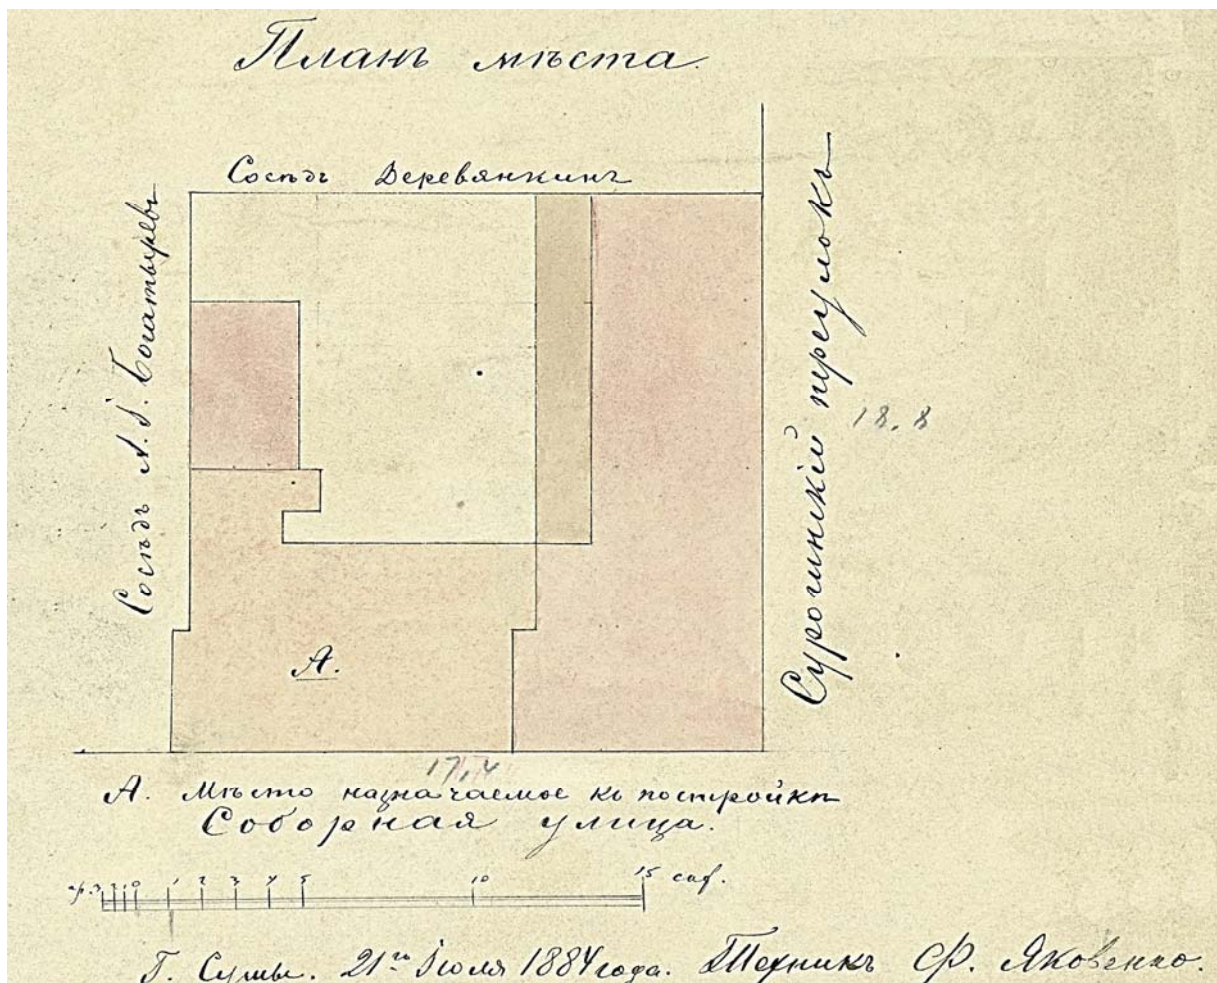 Планъ мѣста.
Сосѣдъ Деревянкинъ
Сосѣдъ А. Г. Богатыревъ
Сурочинскій переулокъ
18,8
А.
17,4
А. Мѣсто назначаемое къ постройкѣ
Соборная улица.
ар. 3 2 1 0 1 2 3 4 5 10 15 саж.
Г. Сумы. 21го Іюля 1884 года. Техникъ Ф. Яковенко.